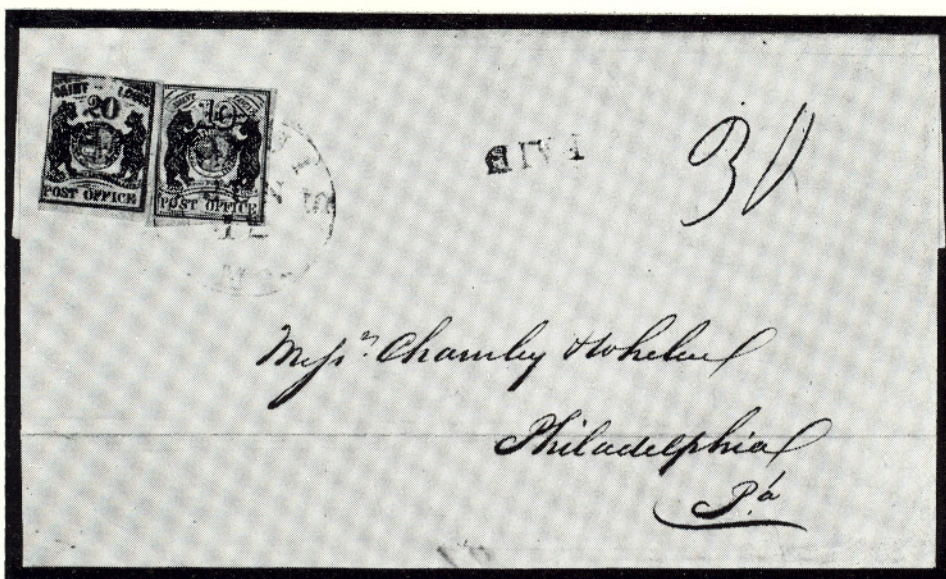 SAINT LOUIS
20
POST OFFICE
SAINT LOUIS
10
POST OFFICE
PAID
30
Mssrs. Charnley
Philadelphia
Pa